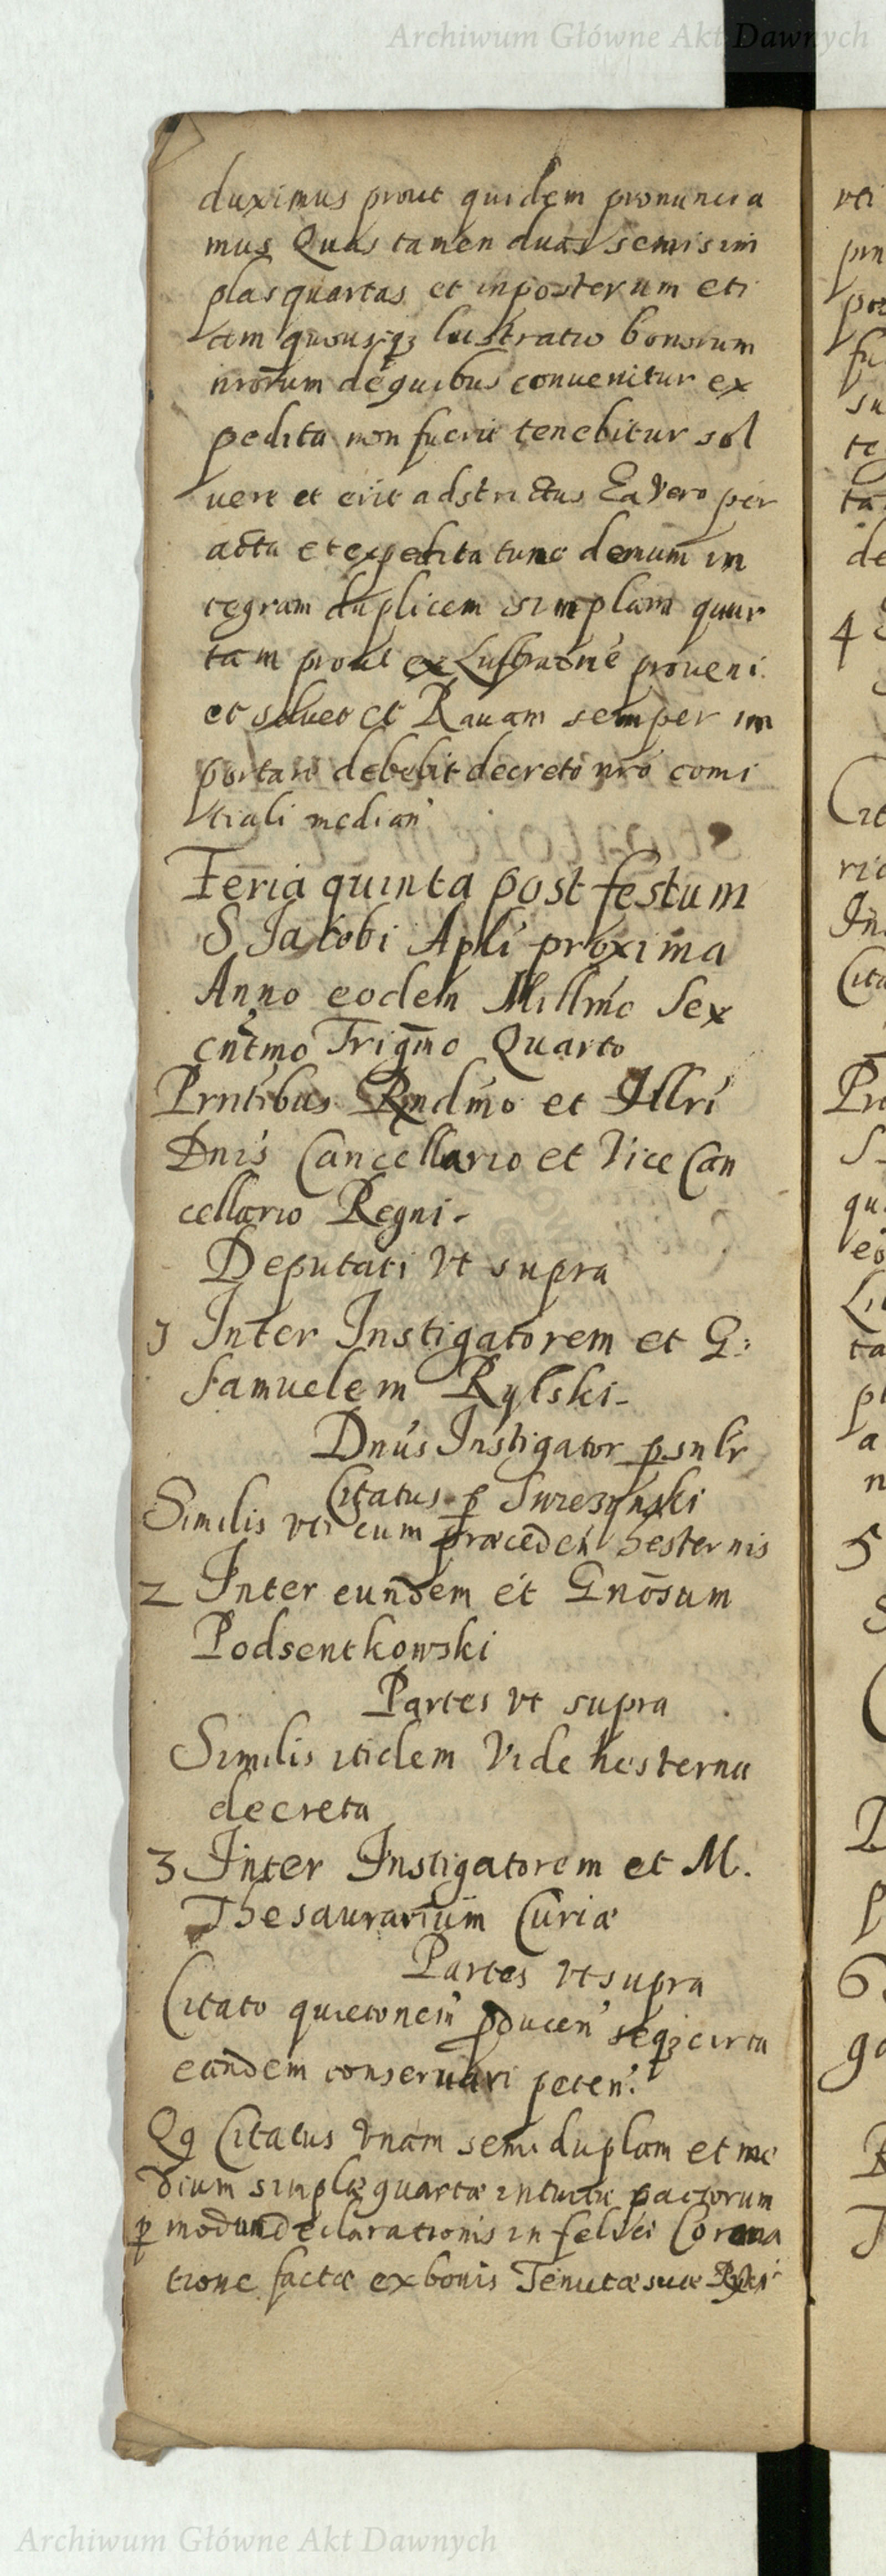 Archiwum Główne Akt Dawnych
duximus prout quidem pronuncia
mus Quas tamen duas semisim
plas quartas et inposterum eti
am quousqz lustratio bonorum
nrorum de quibus convenitur ex
pedita non fuerit tenebitur sol
vere et erit adstrictus Ea vero per
acta et expedita tunc demum in
tegram duplicem simplam quar
tam prout ex Lustratne proveni
et solvet et Ravam semper im
portare debebit decreto nro comi
tiali median
Feria quinta post festum
S Jacobi Apli proxima
Anno eodem Millmo Sex
cntmo Trigmo Quarto
Prntibus Rndmo et Illri
Dnis Cancellario et Vice Can
cellario Regni
Deputati vt supra
1 Inter Instigatorem et G:
Samuelem Rylski
Dnus Instigator psnlr
Citatus p
Similis vti cum præceden hesternis
2 Inter eundem et Gnosum
Podsentkowski
Partes vt supra
Similis itidem Vide hesterna
decreta
3 Inter Instigatorem et M.
Thesaurarium Curiæ
Partes vt supra
Citato quietonem pducen seqz circa
eandem conservari peten:
Qq Citatus vnam semi duplam et me
dium simplæ quartæ intuitu pactorum
p modum declarationis in felici Corona
tione factæ ex bonis Tenutæ suæ
vti
4
5
6
Archiwum Główne Akt Dawnych